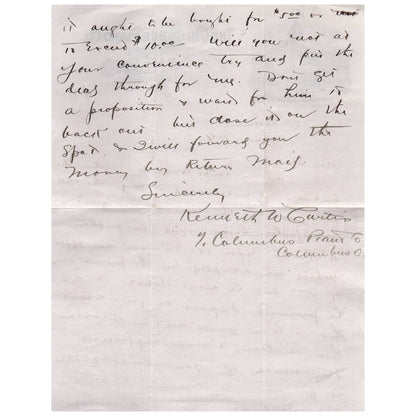 it ought to be bought for $5.00 or not
to Exceed $10.00 Will you not at
your convenience try and put the
deal through for me. Dont get
a proposition & wait for him to
back out but close it on the
Spot. & I will forward you the
Money by Return Mail.
Sincerely
Kenneth W Curtis
% Columbus Piano Co
Columbus O.